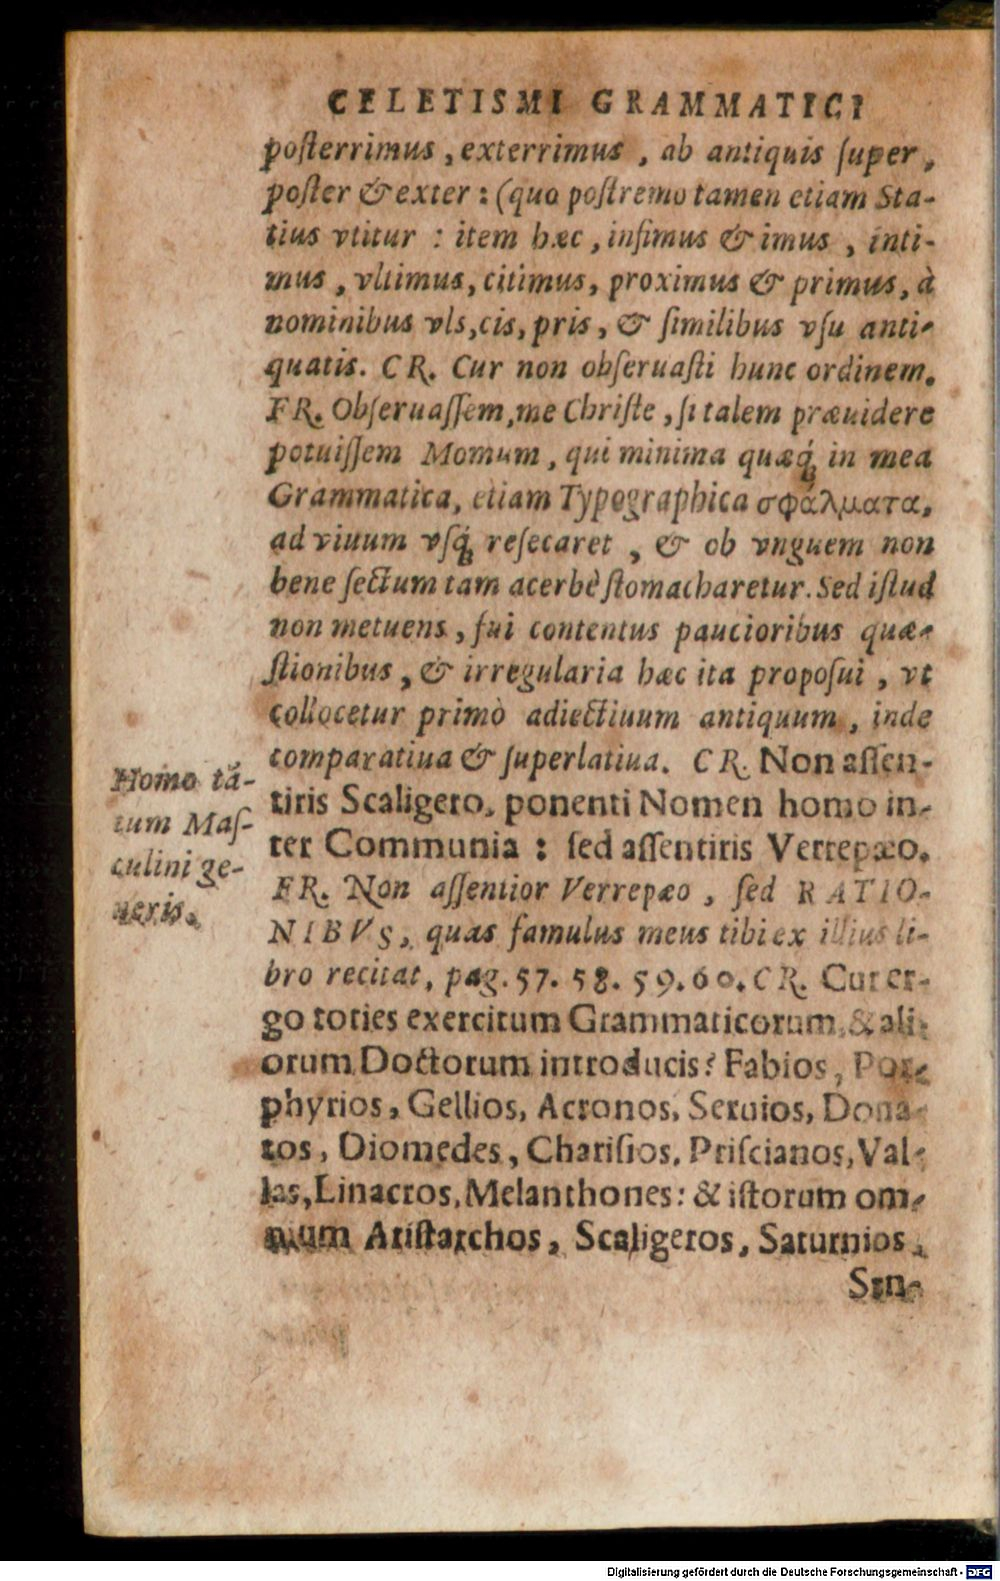 CELETISMI GRAMMATICI
poſterrimus, exterrimus, ab antiquis ſuper,
poſter & exter: (quo poſtremo tamen etiam Sta-
tius vtitur: item hæc, infimus & imus, inti-
mus, vltimus, citimus, proximus & primus, à
nominibus vls, cis, pris, & ſimilibus vſu anti-
quatis. CR. Cur non obſeruaſti hunc ordinem.
FR. Obſeruaſſem, me Chriſte, ſi talem præuidere
potuiſſem Momum, qui minima quæq́; in mea
Grammatica, etiam Typographica σφάλματα,
ad viuum vſq́; reſecaret, & ob vnguem non
bene ſectum tam acerbè ſtomacharetur. Sed iſtud
non metuens, fui contentus paucioribus quæ-
ſtionibus, & irregularia hæc ita propoſui, vt
collocetur primò adiectiuum antiquum, inde
comparatiua & ſuperlatiua. CR. Non aſſen-
Homo tā-
tum Maſ-
culini ge-
neris.
tiris Scaligero, ponenti Nomen homo in-
ter Communia: ſed aſſentiris Verrepæo.
FR. Non aſſentior Verrepæo, ſed RATIO-
NIBVS, quas famulus meus tibi ex illius li-
bro recitat, pag. 57. 58. 59. 60. CR. Cur er-
go toties exercitum Grammaticorum, & ali-
orum Doctorum introducis? Fabios, Por-
phyrios, Gellios, Acronos, Seruios, Dona-
tos, Diomedes, Chariſios, Priſcianos, Val-
las, Linacros, Melanthones: & iſtorum om-
nium Ariſtarchos, Scaligeros, Saturnios,
San-
Digitalisierung gefördert durch die Deutsche Forschungsgemeinschaft - DFG